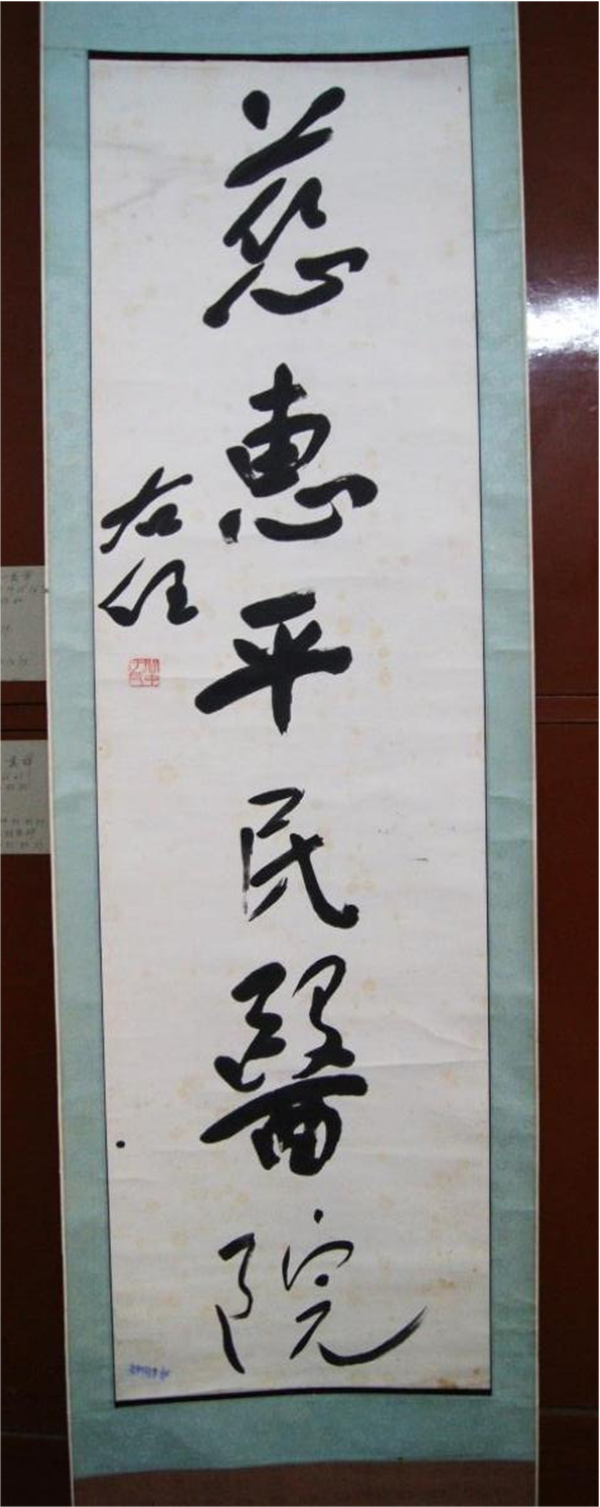 慈惠平民醫院
右任